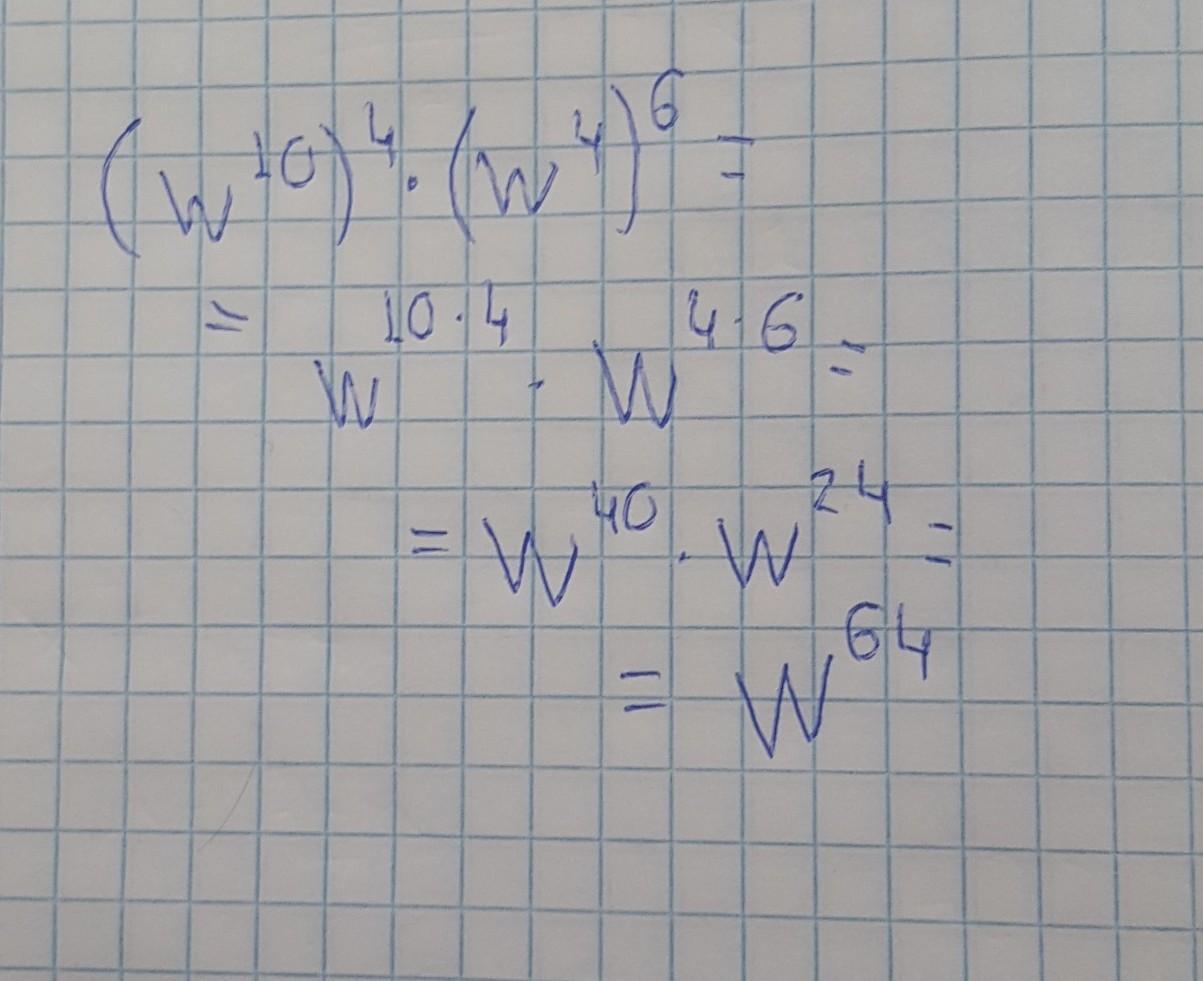 (w^10)^4 · (w^4)^6 =
= w^10·4 · w^4·6 =
= w^40 · w^24 =
= w^64